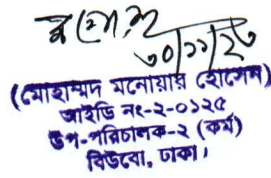 ৩০/১১/২৩
(মোহাম্মদ মনোয়ার হোসেন)
আইডি নং-২-০১২৫
উপ-পরিচালক-২ (কর্ম)
বিউবো, ঢাকা।